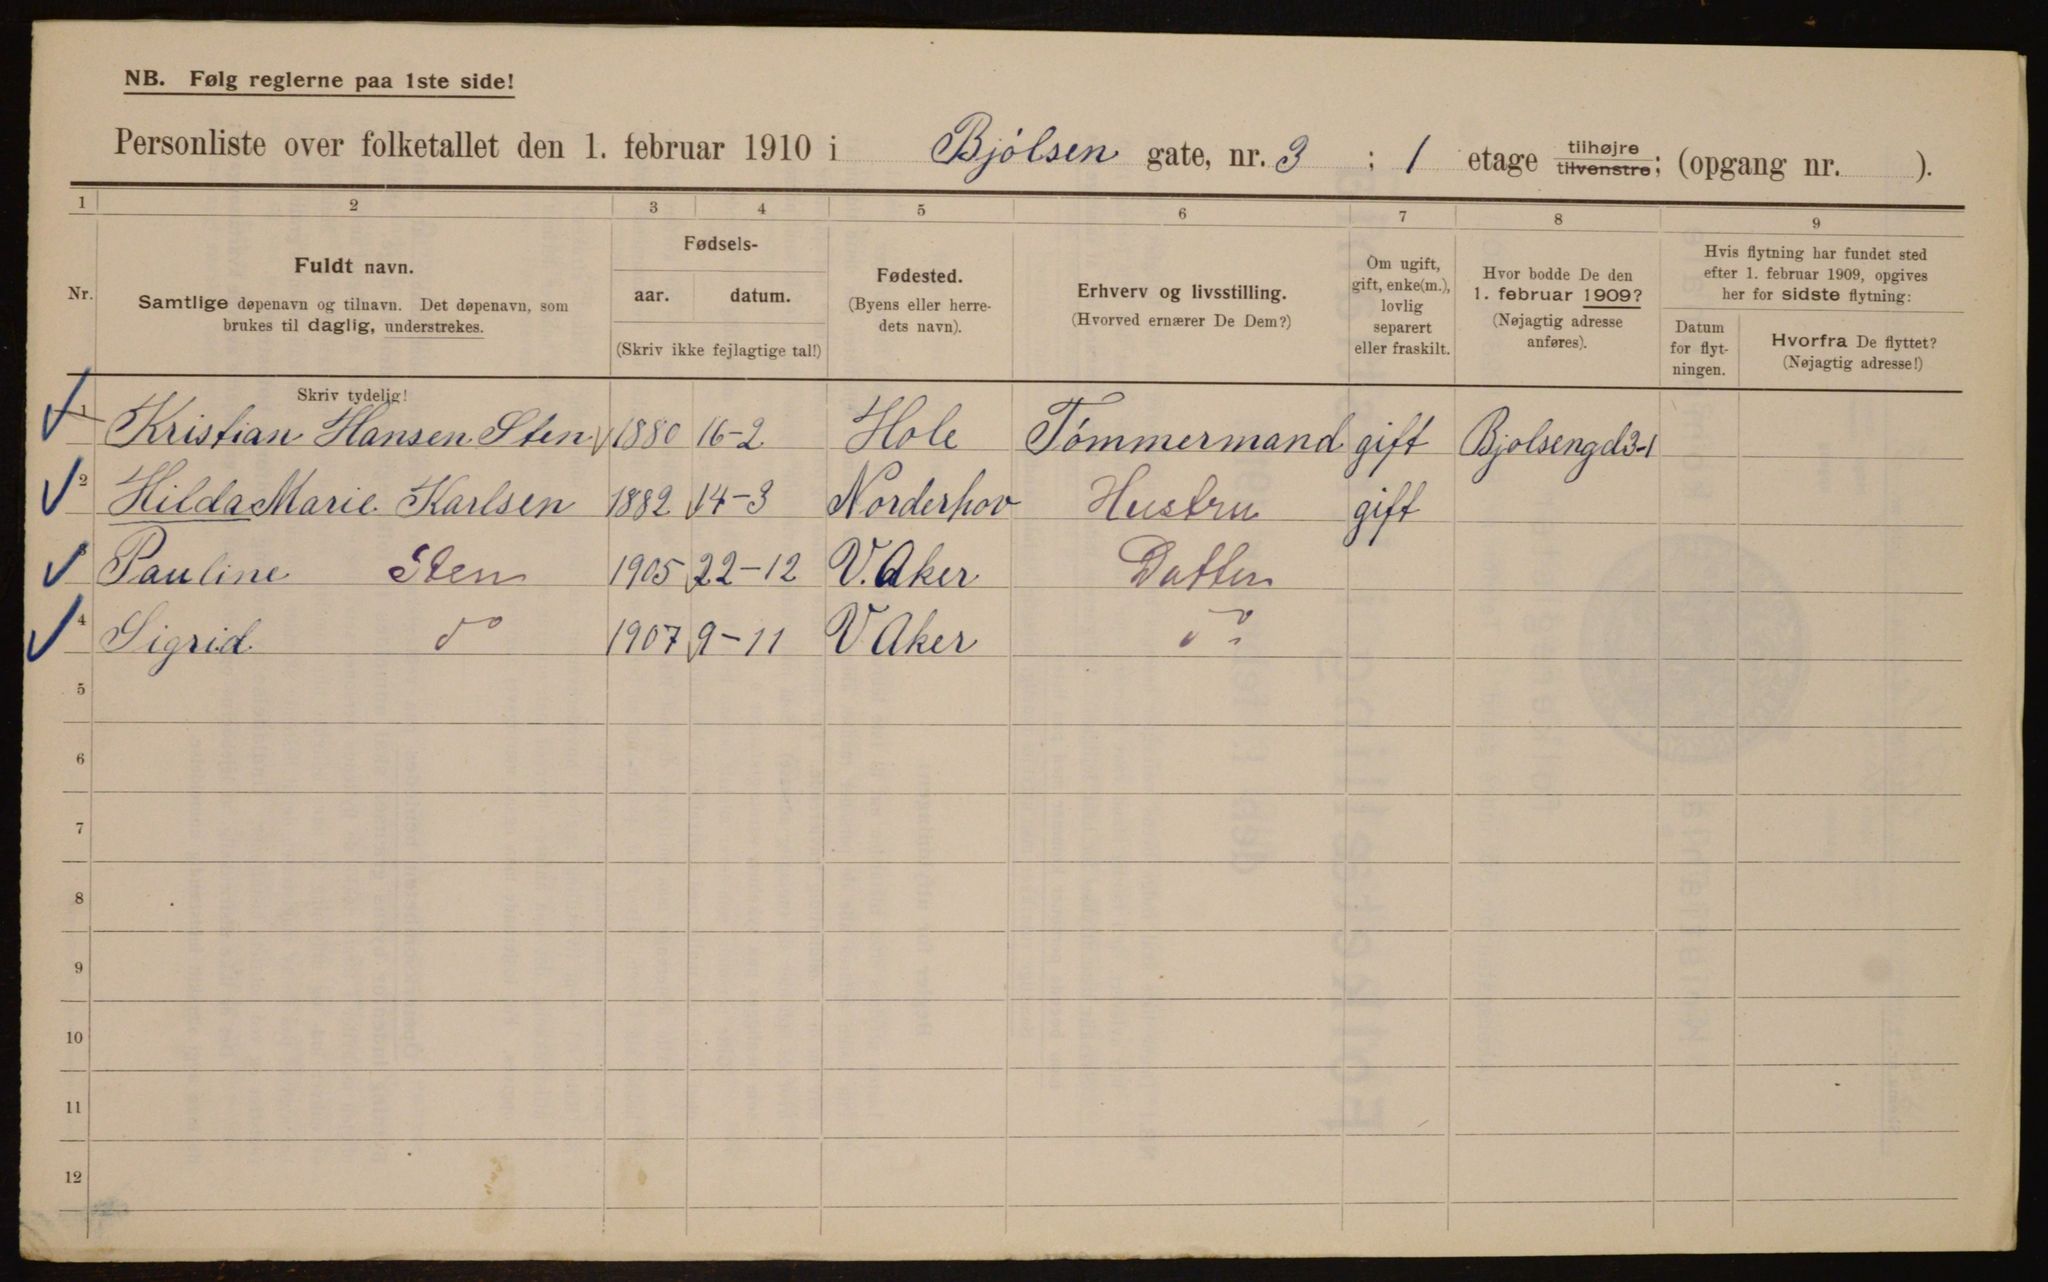 NB. Følg reglerne paa 1ste side!
Personliste over folketallet den 1. februar 1910 i Bjølsen gate, nr. 3 ; 1 etage tilhøjre tilvenstre; (opgang nr. ).
1 2 3 4 5 6 7 8 9
Nr.
Fuldt navn.
Samtlige døpenavn og tilnavn. Det døpenavn, som
brukes til daglig, understrekes.
Fødsels-
aar. datum.
(Skriv ikke fejlagtige tal!)
Fødested.
(Byens eller herre-
dets navn).
Erhverv og livsstilling.
(Hvorved ernærer De Dem?)
Om ugift,
gift, enke(m.),
lovlig
separert
eller fraskilt.
Hvor bodde De den
1. februar 1909?
(Nøjagtig adresse
anføres).
Hvis flytning har fundet sted
efter 1. februar 1909, opgives
her for sidste flytning:
Datum
for flyt-
ningen.
Hvorfra De flyttet?
(Nøjagtig adresse!)
Skriv tydelig!
1 Kristian Hansen Sten 1880 16-2 Hole Tømmermand gift Bjolsengd 3-1
2 Hilda Marie Karlsen 1882 14-3 Norderhov Hustru gift
3 Pauline Sten 1905 22-12 V. Aker Datter
4 Sigrid do 1907 9-11 V Aker do
5
6
7
8
9
10
11
12